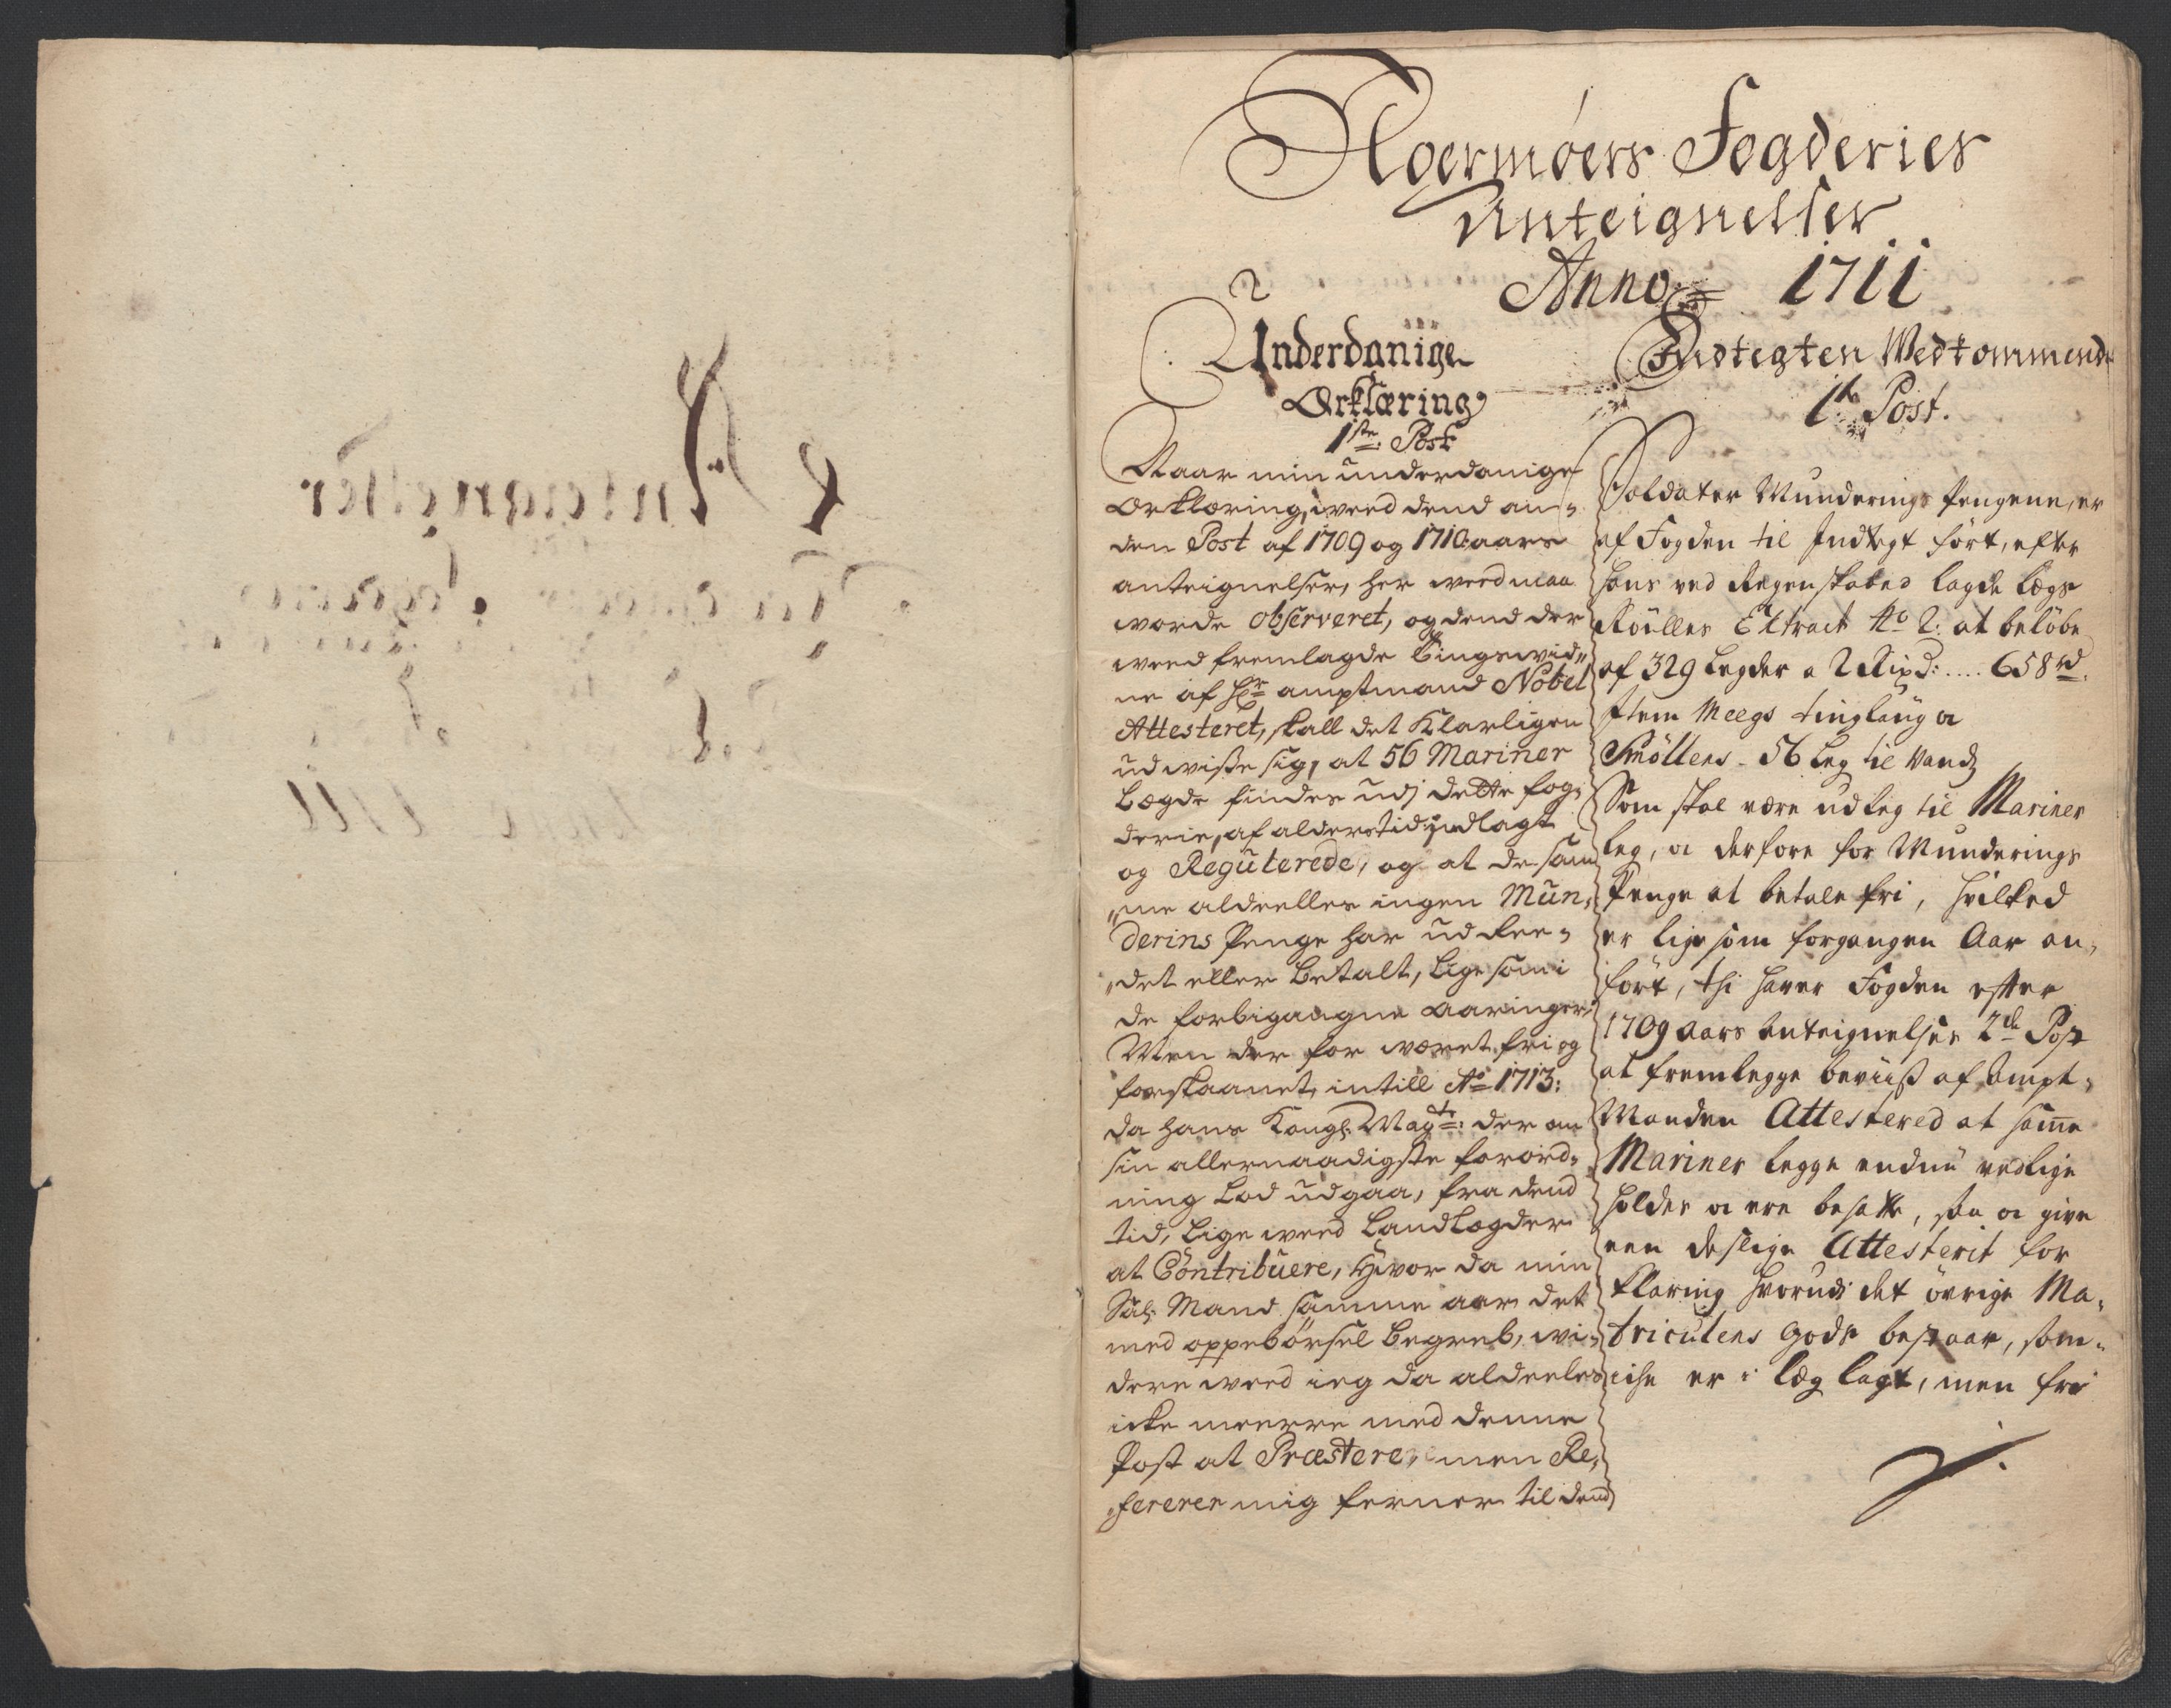 Noermøers Fogderies
Anteignelser
Anno 1711
Underdanige
Erklæring
1ste Post
Naar min underdanige
Erklæring, weed dend an-
den Post af 1709 og 1710 aars
anteignelser, her weed maa
worde observeret, og dend der
weed fremlagde tingswid-
ne af Hr amptmand Nobel
Attesteret, skall det klarligen
udwisse sig, at 56 Mariner
Lægde findes udj dette fog-
derie, af alderstid indlagt
og Reguterede, og at de sam-
me aldeelles ingen Mun-
derins Penge har udree-
det eller betalt, lige som i
de forbigangne aaringer
Men der for wæret fri og
forskaanet, intill Ao 1713:
da hans Kongl. Magtt: der om
sin allernaadigste forord-
ning lod udgaa, fra dend
tid, lige weed Landlægder
at Contribuere, hwor da min
Sal: Mand samme aar det
med oppebørsel begreb, wi-
dere weed ieg da aldeeles
icke meerre med denne
Post at Præstere, men Re-
fererer mig ferner til dend
Indtegten Wedkommende
1te Post.
Soldater Munderings Pengene, er
af Fogden til Indtegt ført, efter
hans ved Regenskabed lagde Legs
Rullers Extract No 2: at beløbe
af 329 Legder a 2 Rixd: .... 658 rd.
Item Meegs tinglaug og
Smøllens - 56 Leg til Vandz
Som skal være udleg til Mariner
leg, og derfore for Munderings
Penge at betale fri, hvilked
er lige som forgangen Aar an-
ført, thi haver Fogden efter
1709 Aars Anteignelser 2de Post
at fremlegge beviis af Ampt-
Manden Attestered at samme
Mariner legge endnu vedlige
holdes og ere besatte, saa og give
een deslige Attesterit for
klaring hvorudi det øvrige Ma-
triculens gods bestaar, som
icke er i læg lagt, men fri